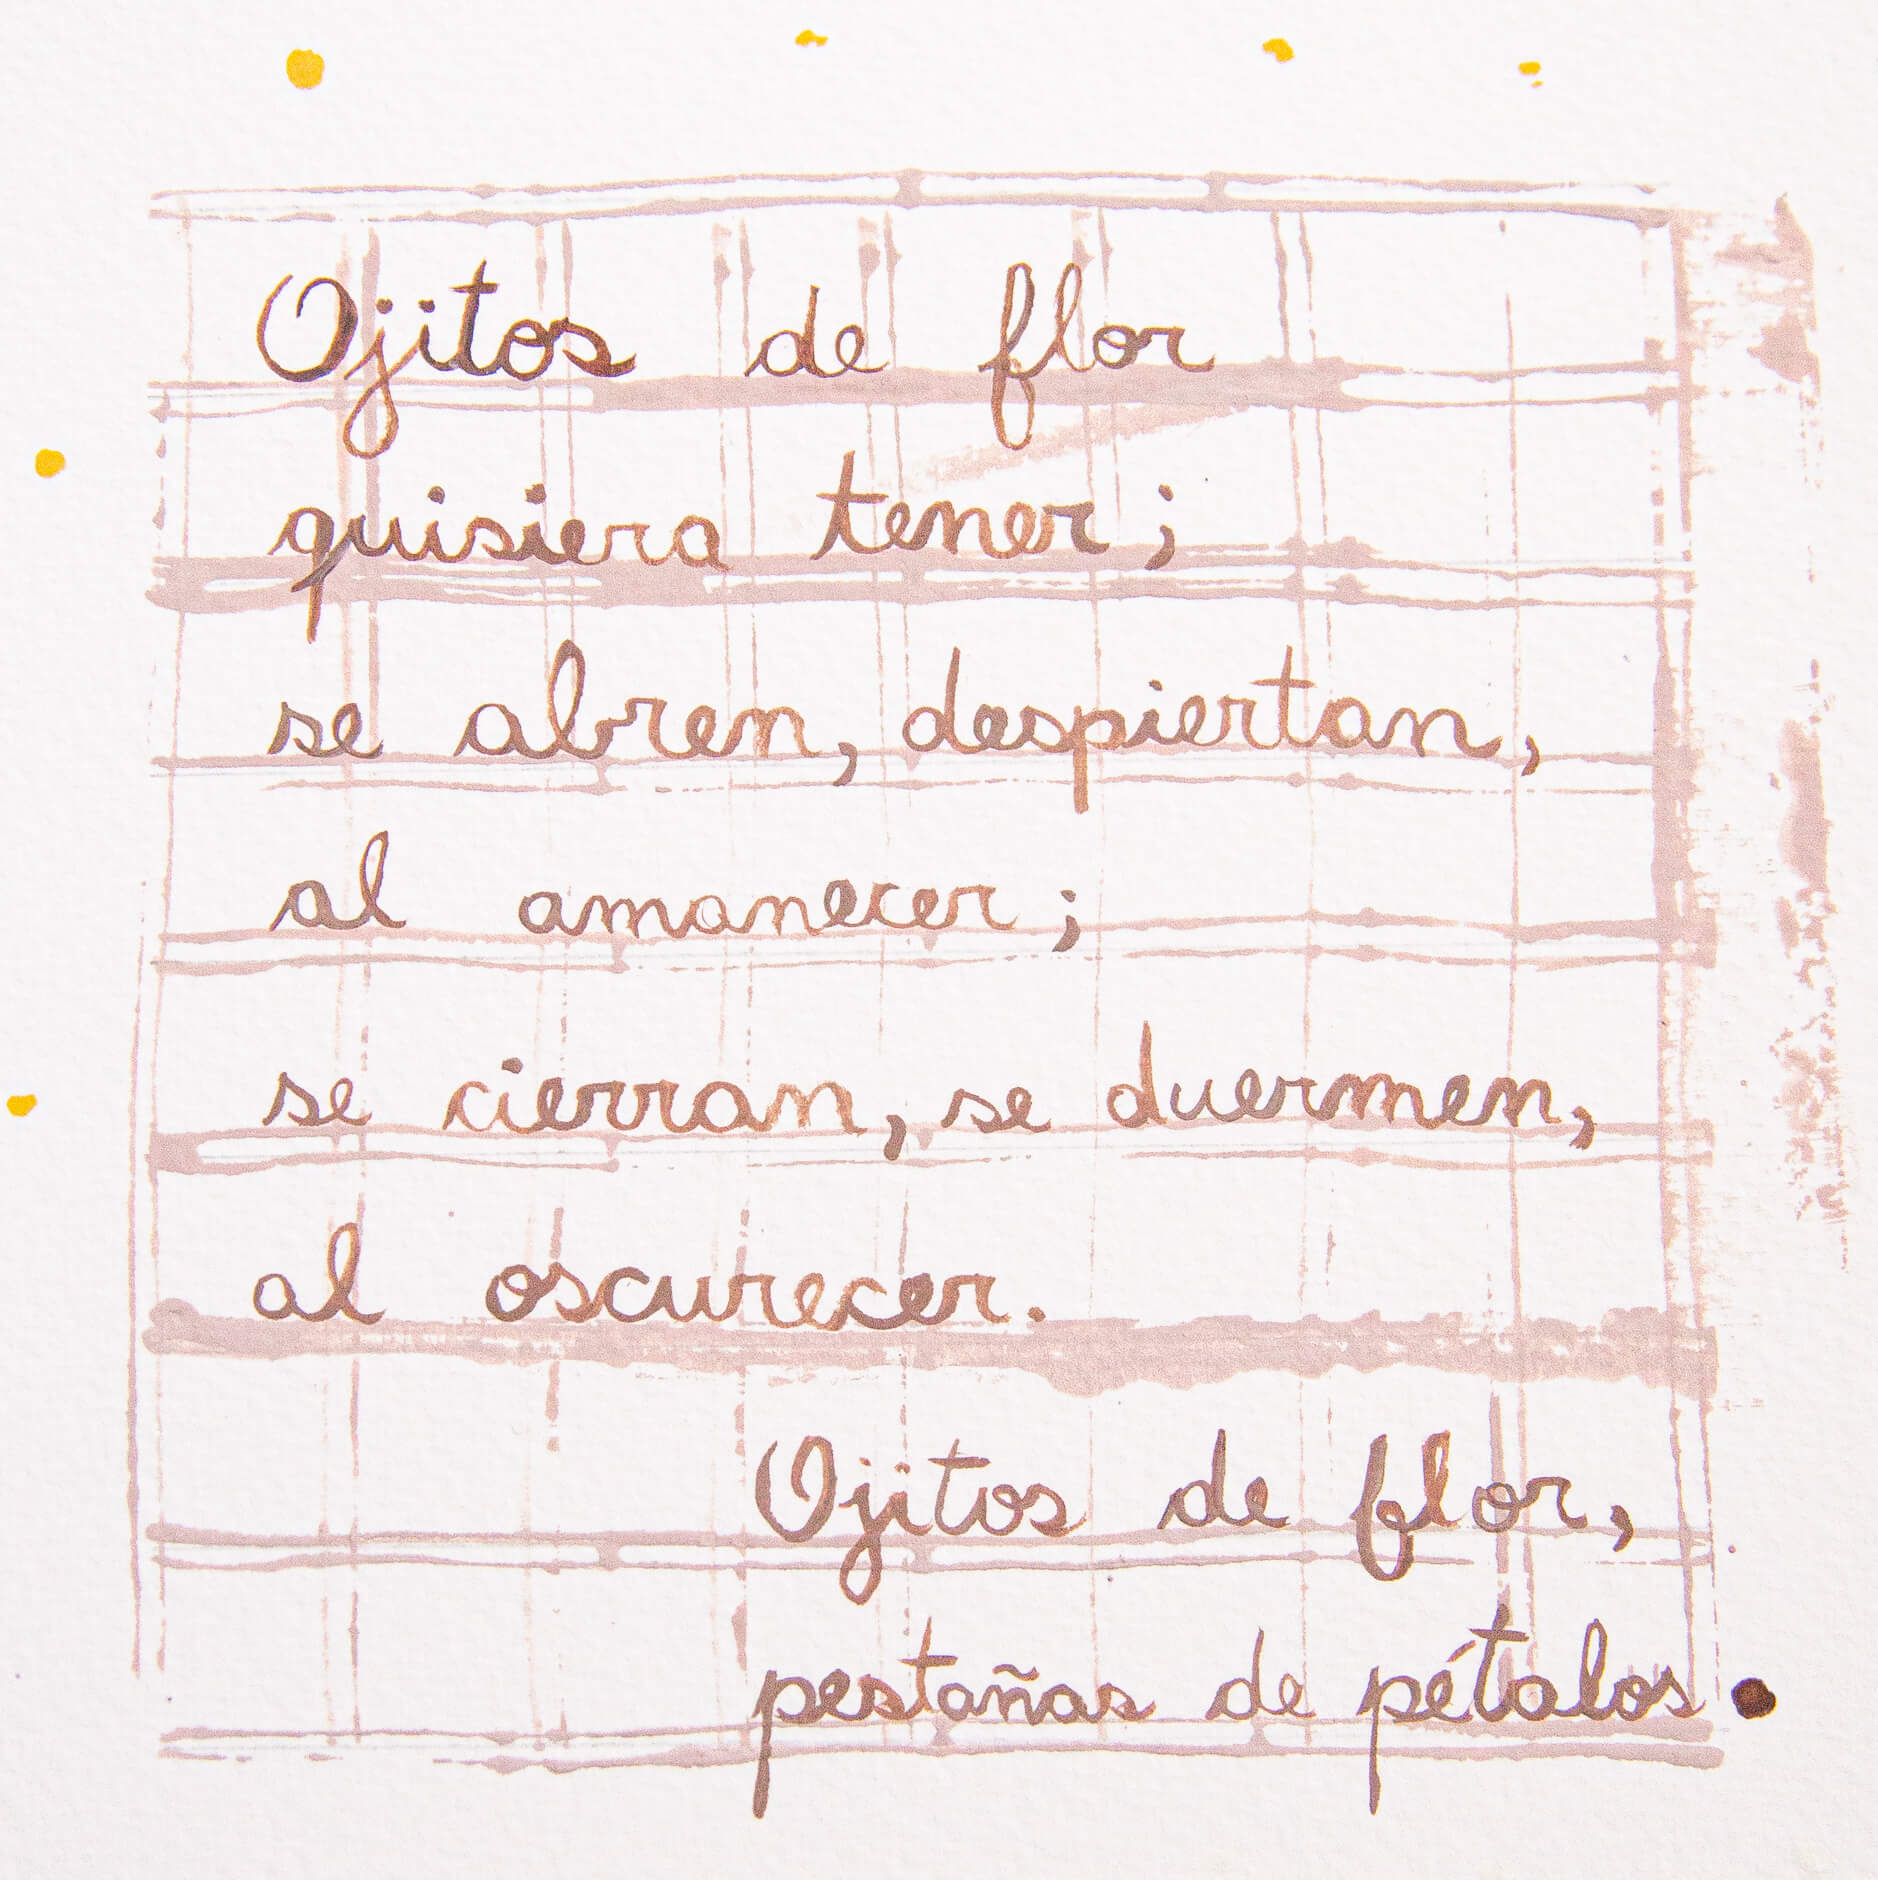 Ojitos de flor
quisiera tener;
se abren, despiertan,
al amanecer;
se cierran, se duermen,
al oscurecer.
Ojitos de flor,
pestañas de pétalos.